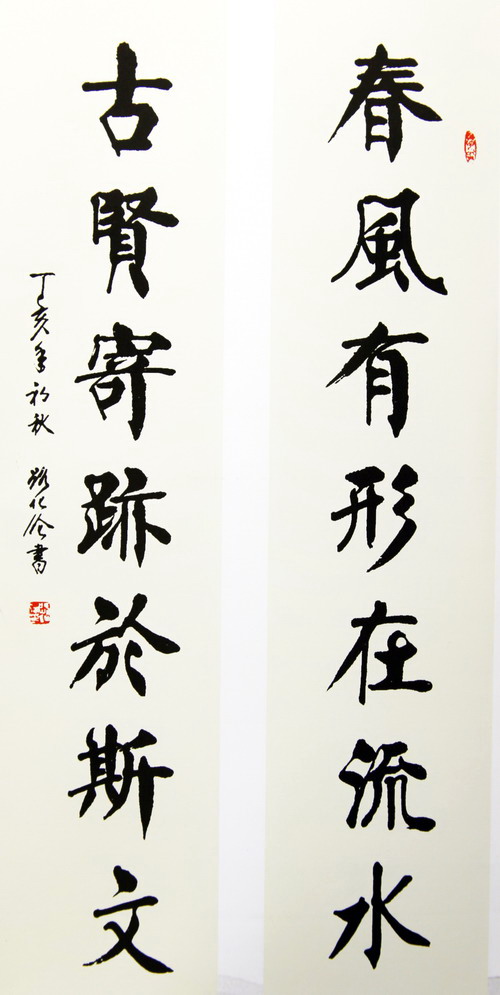 春風有形在流水
古賢寄跡於斯文
丁亥年初秋 路化&#8203;書